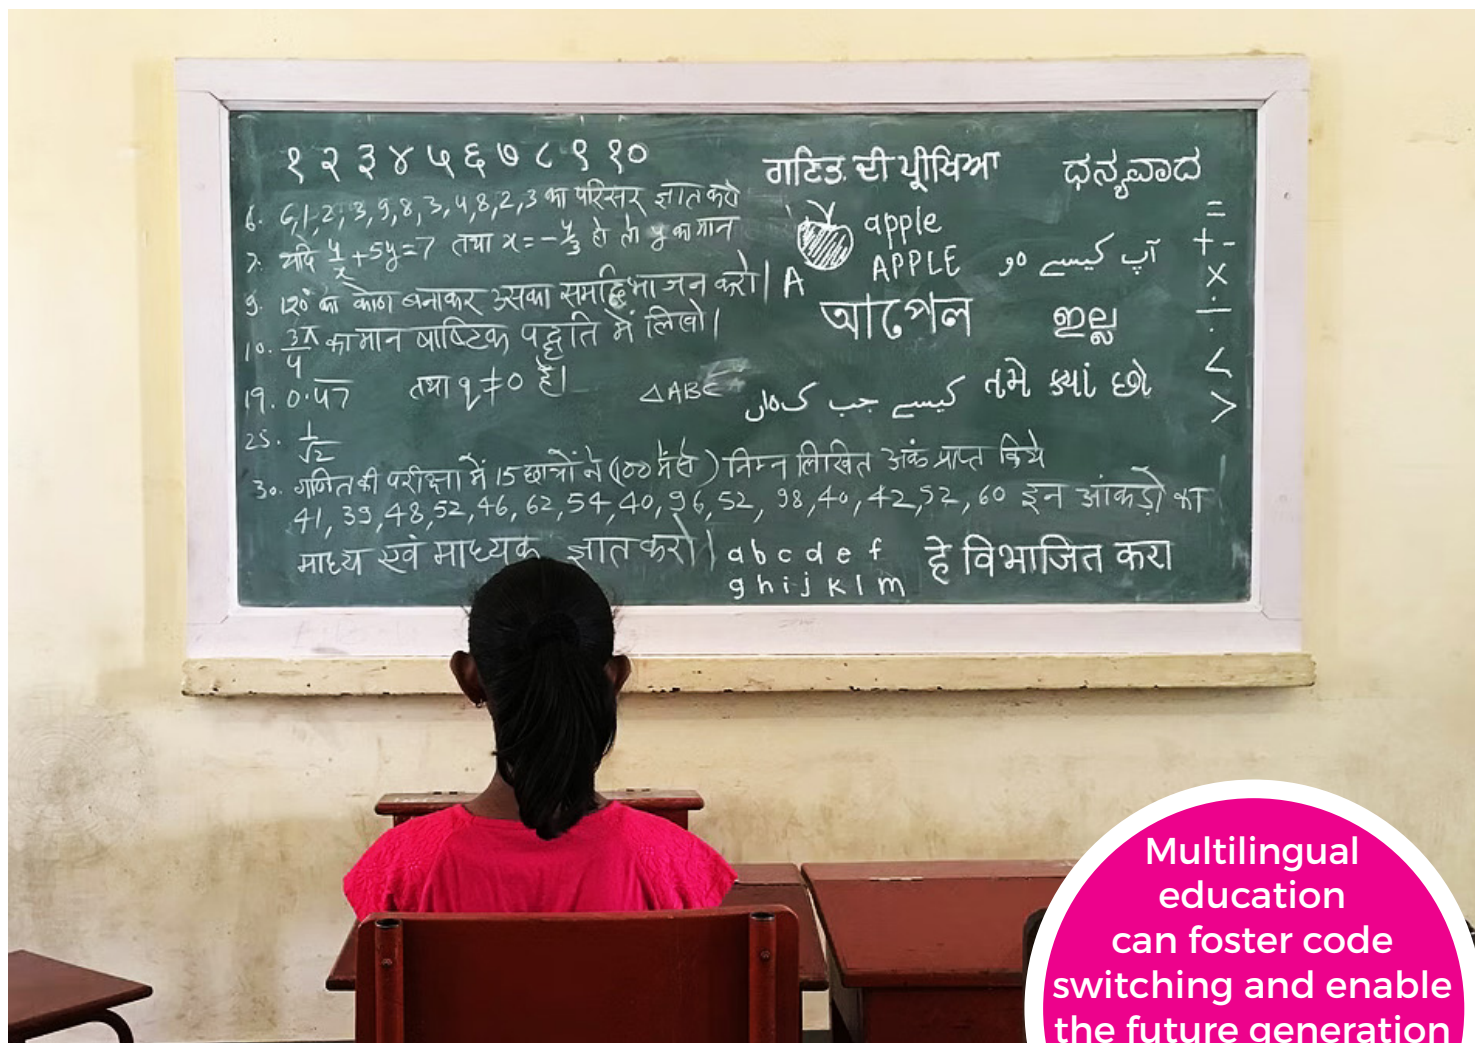 १ २ ३ ४ ५ ६ ७ ८ ९ १०
6. 6,1,2,3,9,8,3,4,8,2,3 का परिसर ज्ञात करो
7. यदि y/x + 5y = 7 तथा x = - हो तो y का मान
9. 120° का कोण बनाकर उसका समद्विभाजन करो।
10. 3π/4 का मान षाष्टिक पद्धति में लिखो।
19. 0.47 तथा q ≠ 0 है।
25. 1/√2
30. गणित की परीक्षा में 15 छात्रों ने (100 में से) निम्न लिखित अंक प्राप्त किये
41, 39, 48, 52, 46, 62, 54, 40, 96, 52, 98, 40, 42, 52, 60 इन आंकड़ो का
माध्य एवं माध्यक ज्ञात करो।
ਗਣਿਤ ਦੀ
ಧನ್ಯವಾದ
apple
APPLE
A
آپ کیسے ہو
আপেল
ഇല്ല
△ABC
کیسے جب کہاں
તમે ક્યાં છો
=
+ -
×
÷
<
>
a b c d e f
g h i j k l m
हे विभाजित करा
Multilingual
education
can foster code
switching and enable
the future generation